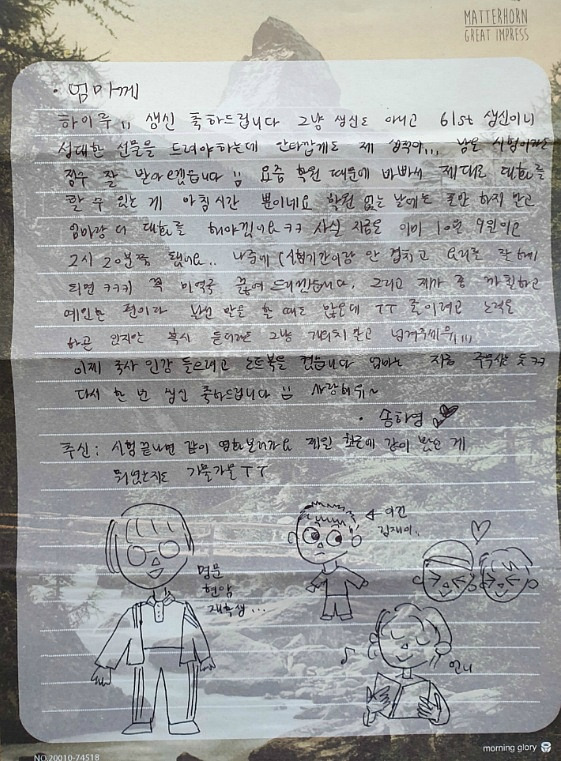 MATTERHORN
GREAT IMPRESS
· 엄마께
하이루 ,, 생신 축하드립니다 그냥 생신도 아니고 61st 생신이니
성대한 선물을 드려야하는데 안타깝게도 제 성적이,,, 남은 시험이라도
점수 잘 받아오겠습니다 !! 요즘 학원 때문에 바빠서 제대로 대화를
할 수 있는 게 아침시간 뿐이네요 학원 없는 날에는 폰만 하지 말고
엄마랑 더 대화를 해야겠어요ㅋㅋ 사실 지금은 이미 10월 9일이고
2시 20분쪽 됐어요.. 나중에 (시험기간이랑 안 겹치고 요리도 잘하게
되면 ㅋㅋㅋ) 꼭 미역국 끓여 드리겠습니다. 그리고 제가 좀 까칠하고
예민한 편이라 날선 말을 할 때도 많은데 ㅜㅜ 줄이려고 노력을
하곤 있지만 혹시 듣더라도 그냥 개의치 말고 넘겨주세요,,,
이제 국사 인강 들으려고 노트북을 켰습니다 엄마는 지금 주무시는 듯ㅋㅋ
다시 한 번 생신 축하드립니다 !! 사랑해요~
· 송하영
추신: 시험끝나면 같이 영화보러가요 제일 최근에 같이 봤던 게
뭐였는지도 가물가물ㅜㅜ
명문
재학생...
이건
언니
NO.20010-74518
morning glory